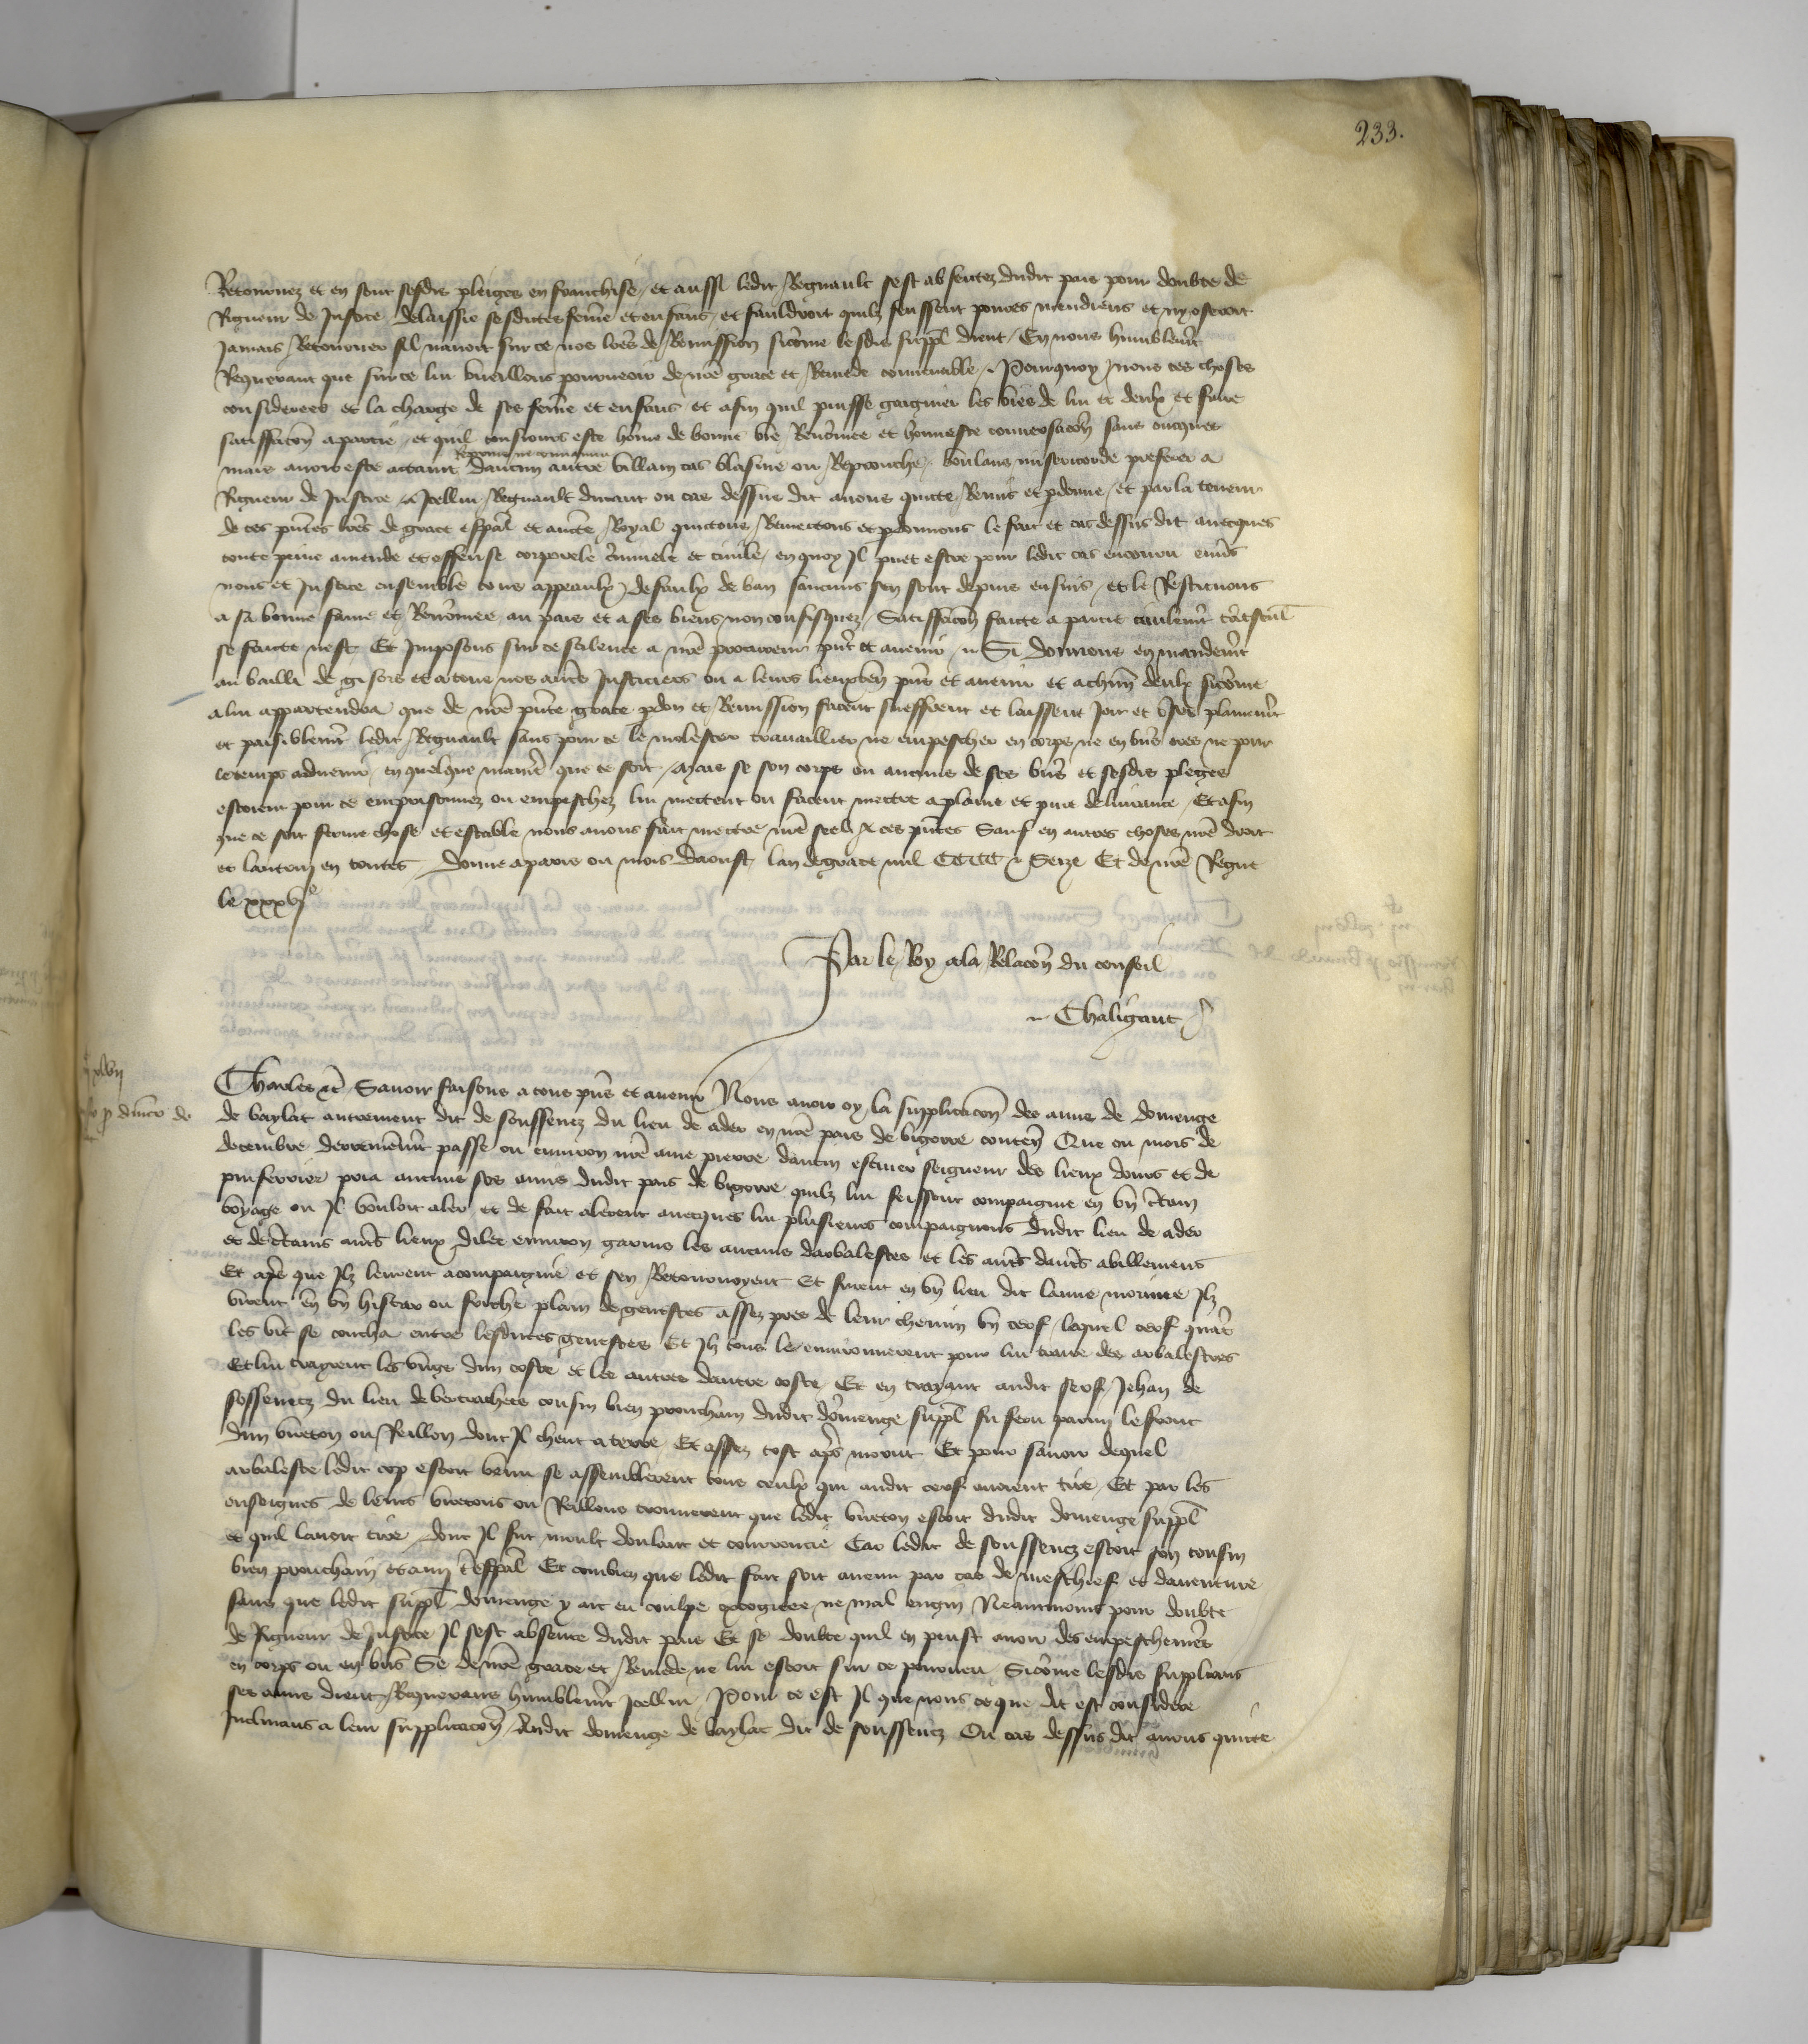 233.
Retournez et en sont sesdis pleiges en franchise et aussi ledit Regnault sest absentez dudit pais pour doubte de
Rigueur de Justice delaissie sesdites feme et enfans et fauldroit quilz feussent poures mendiens et ny oseroit
Jamais Retourner sil nauoit sur ce noz lres de Remission sicome lesdis suppl dient En nous humblemt
Requerant que sur ce lui vueillons pourueoir de nre grace et Remede conuenable Pourquoy nous ces choses
considerees et la charge de ses feme et enfans et afin quil puisse gaigner les vies de lui et deulx et faire
satisfacon a partie et quil tousiours este home de bonne vie Renomee et honneste conuersacon sans oncques
mais auoir este attaint daucun autre villain cas blasme ou Reprouche voulans misericorde preferer a
Rigueur de Justice A Icellui Regnault ou cas dessus dit auons quicte Remis et pdonne et par la teneur
de ces pntes de grace espal et aucte Royal quictons Remettons et pdonnons le fait et cas dessus dit auecques
toute peine amende et offense corporele criminele et ciuile en quoy Il puet estre pour ledit cas encouru enus
nous et Justice ensemble tous appeaulx defaulx de ban saucuns sen sont depuis ensuis et le Restituons
a sa bonne fame et Renomee au pais et a ses biens non confisquez Satisfacon faicte a partie ciuilemt tatseul
se faicte nest Et Imposons sur ce scilence a nre procureur pnt et auenir Si donnons en mandemt
au bailli de gisors et a tous noz auts Justiciers ou a leurs lieuxten pns et auenir et a chun deulx sicome
a lui appartendra que de nre pnte grace pdon et Remission facent sueffrent et laissent Joir et vser plainemt
et paisiblemt ledit Regnault sans pour ce le molester trauaillier ne empescher en corps ne en bns ores ne pour
le temps aduenir en quelque manie que ce soit Mais se son corps ou aucuns de ses bns et sesdis pleges
estoient pour ce emprisonnez ou empeschez lui mettent ou facent mettre a plaine et pure deliurance Et afin
que ce soit ferme chose et estable nous auons fait mettre nre seel a ces pntes Sauf en autres choses nre droit
et lautruy en toutes Donne a paris ou mois daoust lan de grace mil CCCC & Seize Et de nre Regne
le xxxvj
Par le Roy a la Relacon du conseil
Chaligaut
Charles etc Sauoir faisons a tous pns et auenir Nous auoir oy la supplicacon des amis de domenge
de baylac autrement dit de soussenez du lieu de ader en nre pais de bigorre conten Que ou mois de
decembre derrenieremt passe ou enuiron nre ame pierre dantin escuier seigneur des lieux dours et de
puiferrier pria aucuns ses amis dudit pais de bigorre quilz lui feissent compaignie en vn ctain
voyage ou Il vouloit aler et de fait alerent auecques lui plusieurs compaignons dudit lieu de ader
et de ctains auts lieux dilec enuiron garnis les aucuns darbalestes et les auts dauts abillemens
Et apres que Ilz leurent acompaignie et sen Retournoyent Et furent en vn lieu dit lanne morine Ilz
virent en vn histar ou friche plain de genestes assez pres de leur chemin vn cerf lequel cerf quat
les vit se coucha entre lesdites genestes Et Ilz tous le enuironnerent pour lui traire des arbalestres
Et lui trayrent les vngs dun coste et les autres dautre coste Et en trayant audit serf Jehan de
sossenetz du lieu de cousin bien prouchain dudit domenge suppl fu feru parmi le front
dun vireton ou Reillon dont Il cheut a terre Et assez tost aps mourut Et pour sauoir dequel
arbaleste ledit cop estoit venu se assemblerent tous ceulx qui audit cerf auoient tire Et par les
enseignes de leurs viretons ou Reillons trouuerent que ledit vireton estoit dudit domenge suppl
et quil lauoit tire dont Il fut moult doulant et courroucie Car ledit de soussenez estoit son cousin
bien prouchain et amy tespal Et combien que ledit fait soit auenu par cas de meschief et dauenture
sans que ledit suppl domenge y ait eu coulpe excogitee ne mal engin Neantmoins pour doubte
de Rigueur de Justice Il sest absente dudit pais Et se doubte quil en peust auoir des empeschemes
en corps ou en bns Se de nre grace et Remede ne lui estoit sur ce pourueu Sicome lesdis supplians
ses amis dient Requerans humblemt Icellui Pour ce est Il que nous ce que dit est considere
Inclinans a leur supplicacon Audit domenge de baylac dit de soussenez Ou cas dessus dit auons quicte